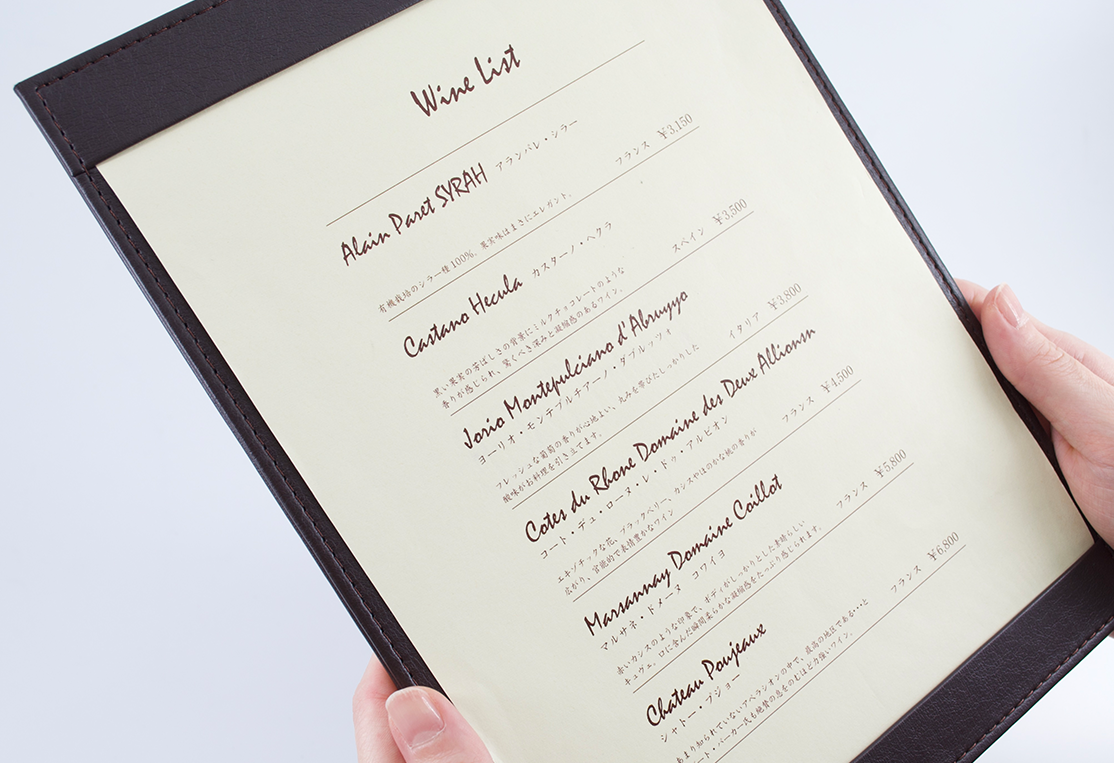 Wine List
Alain Paret SYRAH アランパレ・シラー
フランス ¥3,150
有機栽培のシラー種100%。果実味はまさにエレガント。
Castano Hecula カスターノ・ヘクラ
スペイン ¥3,500
黒い果実の芳ばしさの背景にミルクチョコレートのような
香りが感じられ、驚くべき深みと凝縮感のあるワイン。
Jorio Montepulciano d'Abruyyo
ヨーリオ・モンテプルチアーノ・ダブルッツイ
イタリア ¥3,800
フレッシュな葡萄の香りが心地よい、丸みを帯びたしっかりした
酸味がお料理を引き立てます。
Cotes du Rhone Domaine des Deux Allionsn
コート・デュ・ローヌ・レ・ドゥ・アルビオン
フランス ¥4,500
エキゾチックな花、ブラックベリー、カシスやほのかな桃の香りが
広がり、官能的で表情豊かなワイン
Marsannay Domaine Coillot
マルサネ・ドメーヌ コワイヨ
フランス ¥5,800
赤いカシスのような印象で、ボディがしっかりとした素晴らしい
キュヴェ。口に含んだ瞬間柔らかな凝縮感をたっぷり感じられます。
Chateau Poujeaux
シャトー・プジョー
フランス ¥6,800
あまり知られていないアペラシオンの中で、最高の地区である…と
ート・パーカー氏も絶賛の息をのむほど力強いワイン。